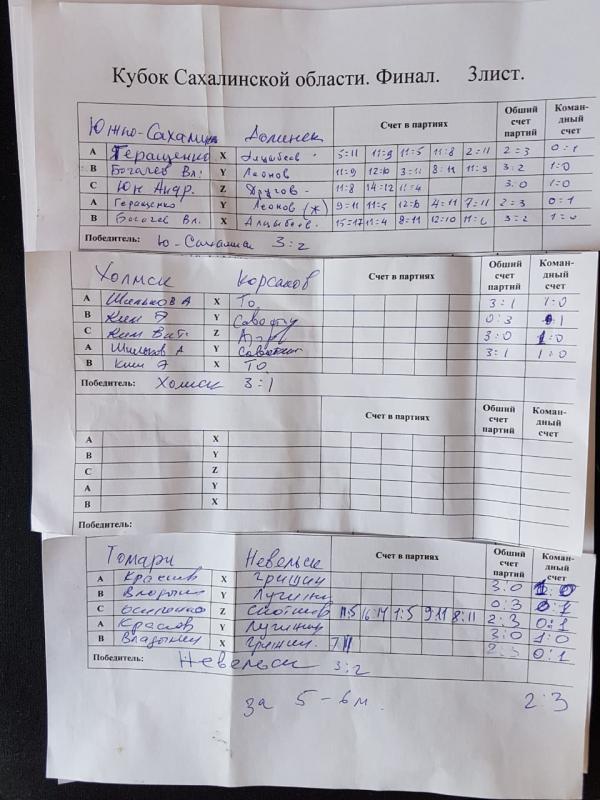 Кубок Сахалинской области. Финал. 3лист.
Южно-Сахалин Долинск Счет в партиях Общий счет партий Коман-дный счет
A Геращенко X Алцыбеев 5:11 11:9 11:5 11:8 2:11 2=3 0:1
B Богачев Вл. Y Леонов 11:9 12:10 3:11 8:11 11:9 3:2 1:0
C Юн Андр. Z Другов 11:8 14:12 11:4 3:0 1:0
A Геращенко Y Леонов (ж) 9:11 11:5 12:10 4:11 7:11 2=3 0:1
B Богачев Вл. X Алцыбеев 15=17 11:4 8:11 12:10 11:6 3:2 1:0
Победитель: Ю-Сахалинск 3:2
Холмск Корсаков Счет в партиях Общий счет партий Коман-дный счет
A Шильков А X То 3:1 1:0
B Ким Э Y 0:3 :1
C Ким Вит. Z 3:0 1:0
A Шильков А Y 3:1 1:0
B Ким Э X То
Победитель: Холмск 3:1
Счет в партиях Общий счет партий Коман-дный счет
A X
B Y
C Z
A Y
B X
Победитель:
Томари Невельск Счет в партиях Общий счет партий Коман-дный счет
A X Гришин 3:0 1:0
B Y 0:3 0:1
C Z 11:5 16:14 1:5 9:11 8:11 2:3 0:1
A Краснов Y 3:0 1:0
B X Гришин 0:1
Победитель: Невельск 3:2
за 5-6м. 2:3